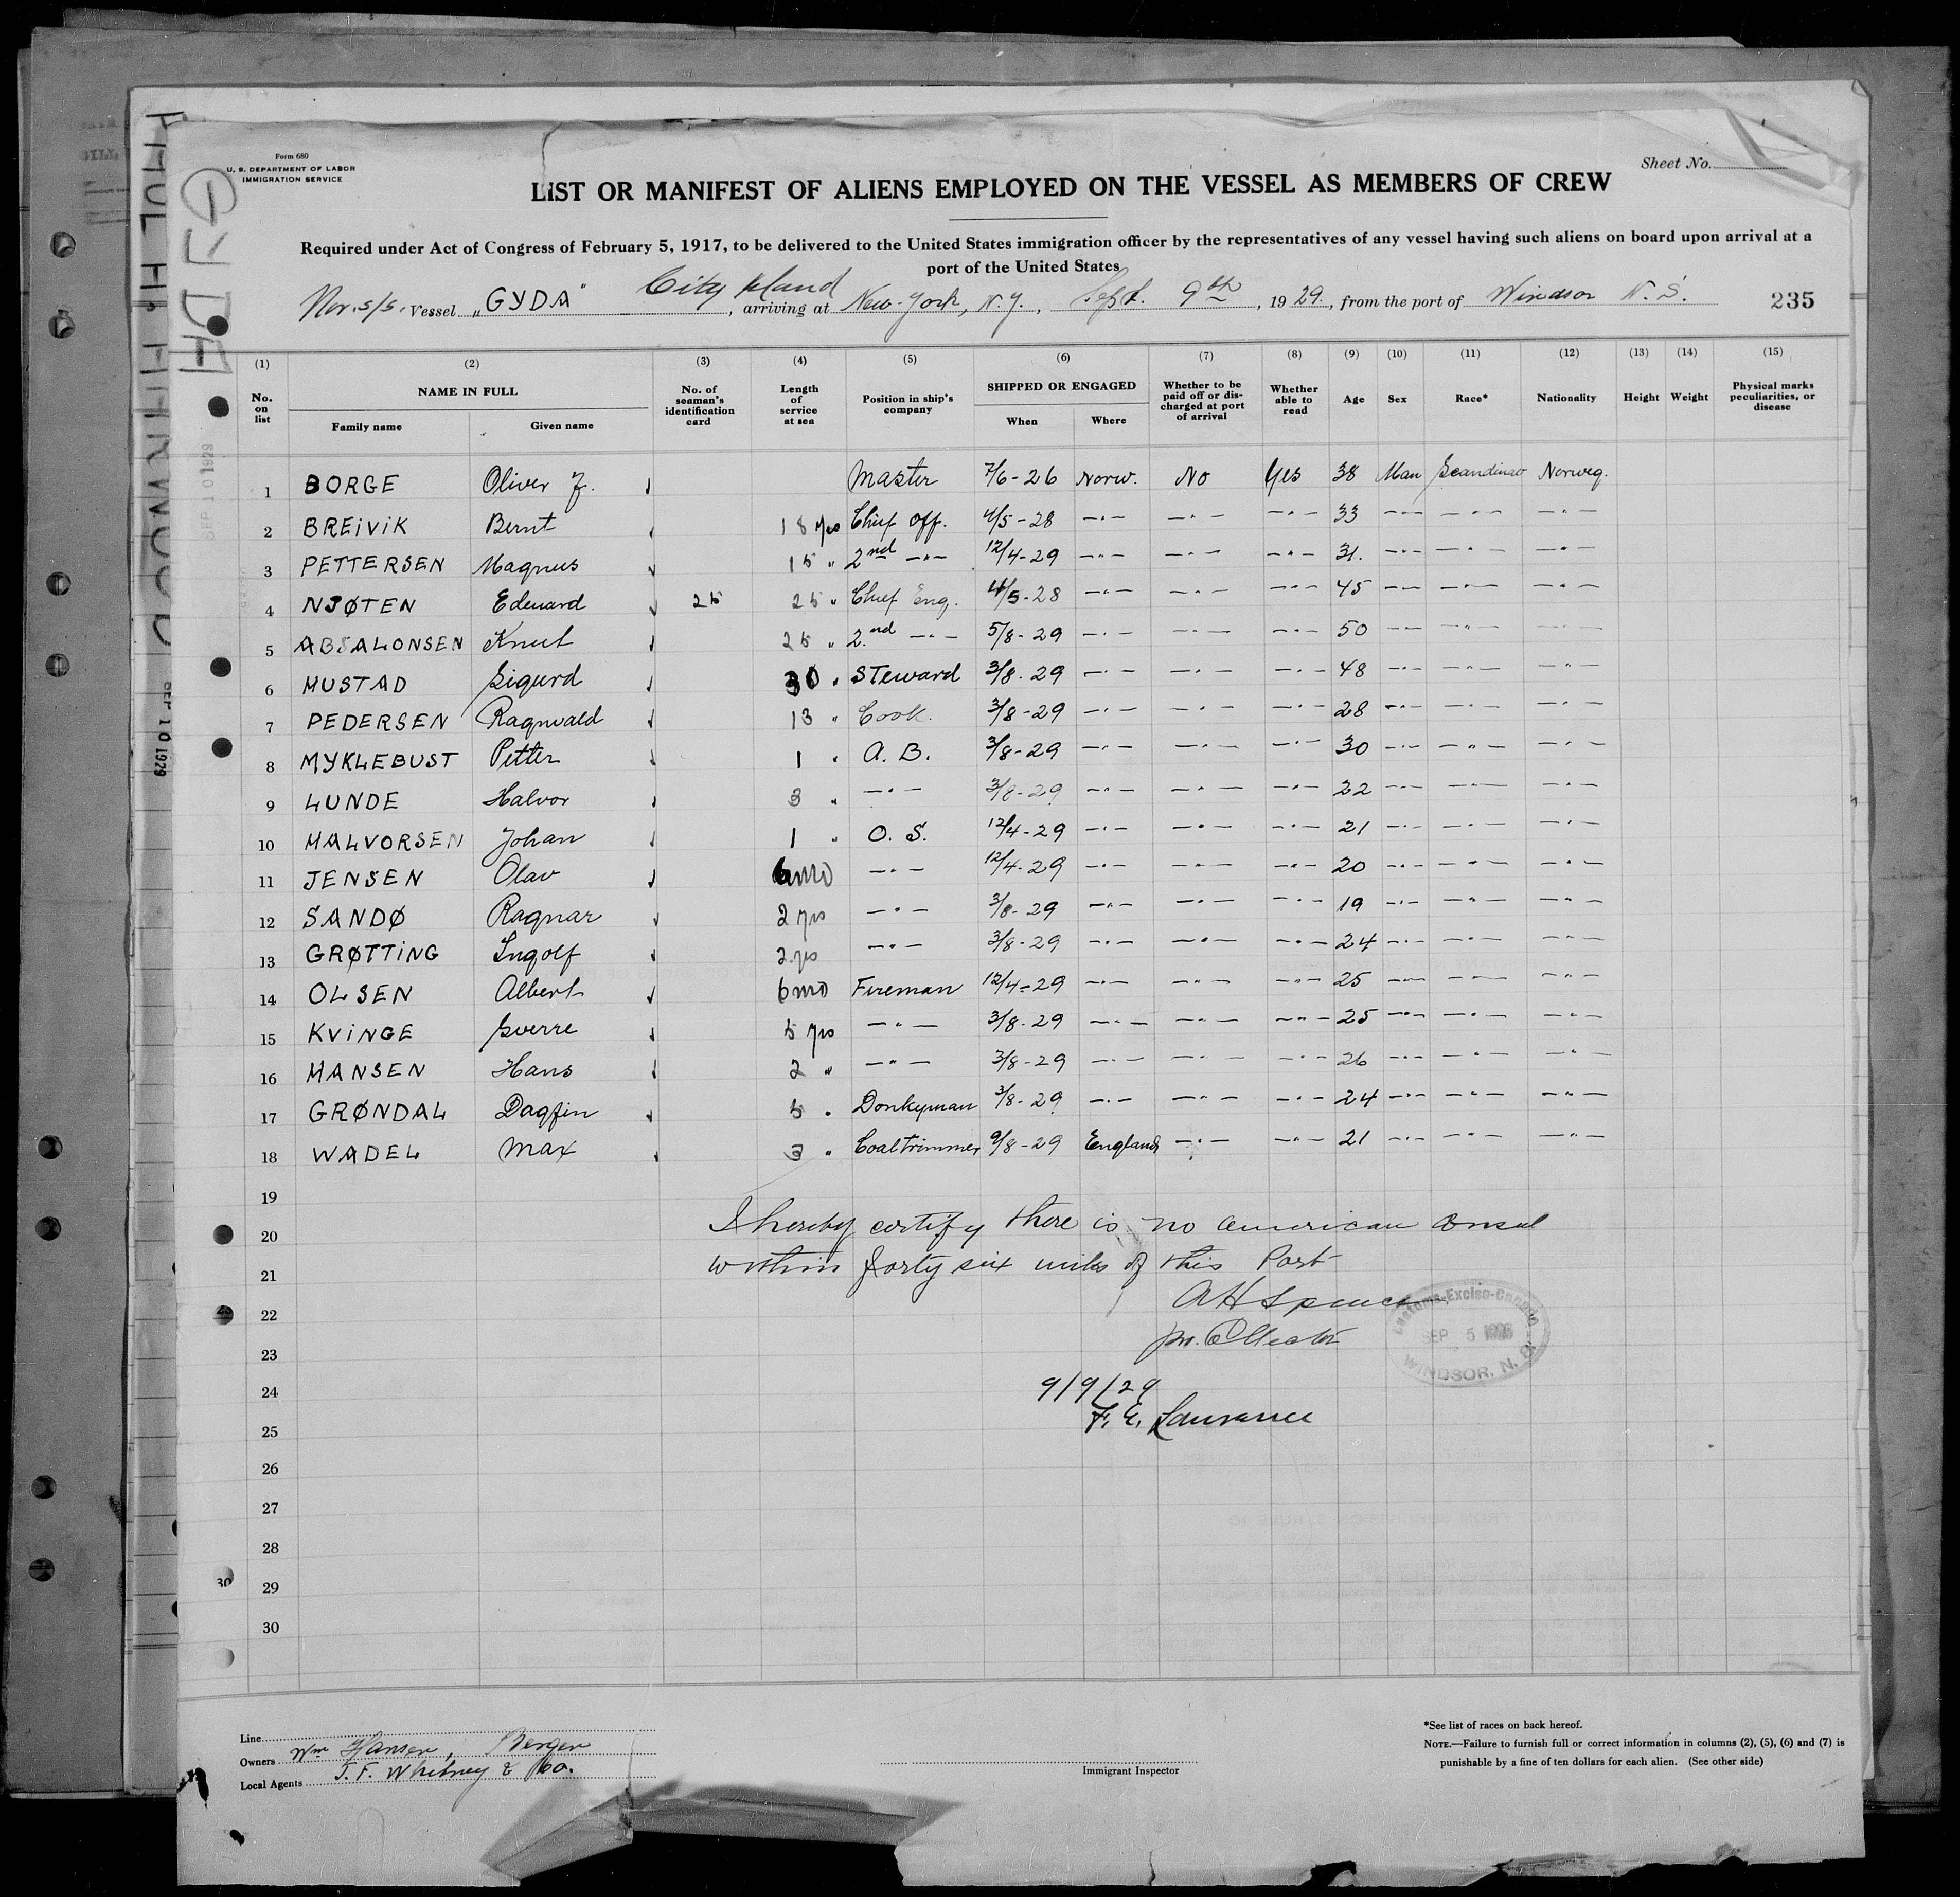 Form 680
U. S. DEPARTMENT OF LABOR
IMMIGRATION SERVICE
Sheet No.
LIST OR MANIFEST OF ALIENS EMPLOYED ON THE VESSEL AS MEMBERS OF CREW
Required under Act of Congress of February 5, 1917, to be delivered to the United States immigration officer by the representatives of any vessel having such aliens on board upon arrival at a
port of the United States
Nor. s/s. Vessel "GYDA" City Island, arriving at New-York, N.Y., Sept. 9th, 1929, from the port of Windsor N.S. 235
(1) (2) (3) (4) (5) (6) (7) (8) (9) (10) (11) (12) (13) (14) (15)
No. on list NAME IN FULL Family name Given name No. of seaman's identification card Length of service at sea Position in ship's company SHIPPED OR ENGAGED When Where Whether to be paid off or discharged at port of arrival Whether able to read Age Sex Race* Nationality Height Weight Physical marks peculiarities, or disease
1 BORGE Oliver J. Master 7/6-26 Norw. No Yes 38 Man Scandinav Norweg.
2 BREIVIK Bernt 18 yrs Chief Off. 4/5-28 -"- -"- -"- 33 -"- -"- -"-
3 PETTERSEN Magnus 15 " 2nd -"- 12/4-29 -"- -"- -"- 31. -"- -"- -"-
4 NJØTEN Edward 25 25 " Chief Eng. 4/5-28 -"- -"- -"- 45 -"- -"- -"-
5 ABSALONSEN Knut 25 " 2nd -"- 5/8-29 -"- -"- -"- 50 -"- -"- -"-
6 MUSTAD Sigurd 30 " Steward 3/8-29 -"- -"- -"- 48 -"- -"- -"-
7 PEDERSEN Ragnvald 13 " Cook. 3/8-29 -"- -"- -"- 28 -"- -"- -"-
8 MYKLEBUST Petter 1 " A.B. 3/8-29 -"- -"- -"- 30 -"- -"- -"-
9 LUNDE Halvor 3 " -"- 3/8-29 -"- -"- -"- 22 -"- -"- -"-
10 HALVORSEN Johan 1 " O.S. 12/4-29 -"- -"- -"- 21 -"- -"- -"-
11 JENSEN Olav 6 mo -"- 12/4-29 -"- -"- -"- 20 -"- -"- -"-
12 SANDØ Ragnar 2 yrs -"- 3/8-29 -"- -"- -"- 19 -"- -"- -"-
13 GRØTTING Ingolf 2 yrs -"- 3/8-29 -"- -"- -"- 24 -"- -"- -"-
14 OLSEN Albert 6 mo Fireman 12/4-29 -"- -"- -"- 25 -"- -"- -"-
15 KVINGE Sverre 5 yrs -"- 3/8-29 -"- -"- -"- 25 -"- -"- -"-
16 HANSEN Hans 2 " -"- 3/8-29 -"- -"- -"- 26 -"- -"- -"-
17 GRØNDAL Dagfin 5 " Donkyman 3/8-29 -"- -"- -"- 24 -"- -"- -"-
18 WADEL Max 3 " Coaltrimmer 9/8-29 England -"- -"- 21 -"- -"- -"-
19
20 I hereby certify there is no american Consul
21 within forty six miles of this Port
22 A H Spence
23 pro. Collector
Customs-Excise-Canada
SEP 5
WINDSOR, N.
24 9/9/29
25 F. E. Lawrance
26
27
28
29
30
SEP 10 1929
SEP 10 1929
30
Line
Owners Wm Hansen, Bergen
Local Agents J. F. Whitney & Co.
Immigrant Inspector
*See list of races on back hereof.
NOTE.—Failure to furnish full or correct information in columns (2), (5), (6) and (7) is
punishable by a fine of ten dollars for each alien. (See other side)